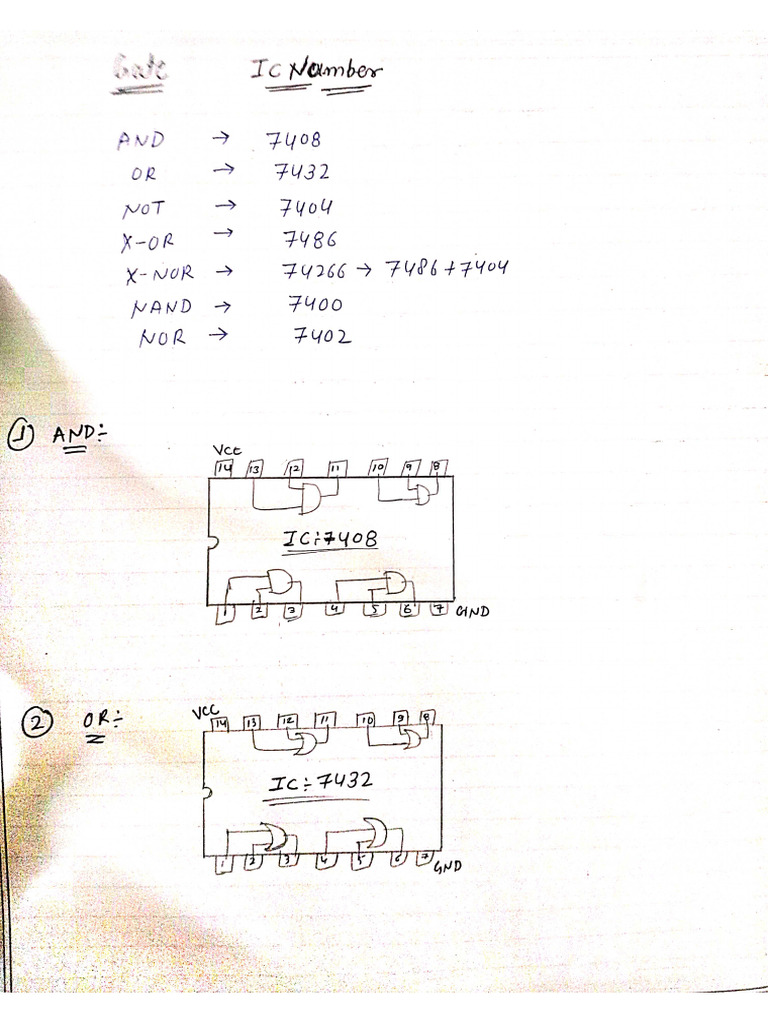 Gate IC Number
AND → 7408
OR → 7432
NOT → 7404
X-OR → 7486
X-NOR → 74266 → 7486+7404
NAND → 7400
NOR → 7402
① AND:-
VCC
14 13 12 11 10 9 8
IC:-7408
1 2 3 4 5 6 7 GND
② OR:-
VCC
14 13 12 11 10 9 8
IC:-7432
1 2 3 4 5 6 7 GND